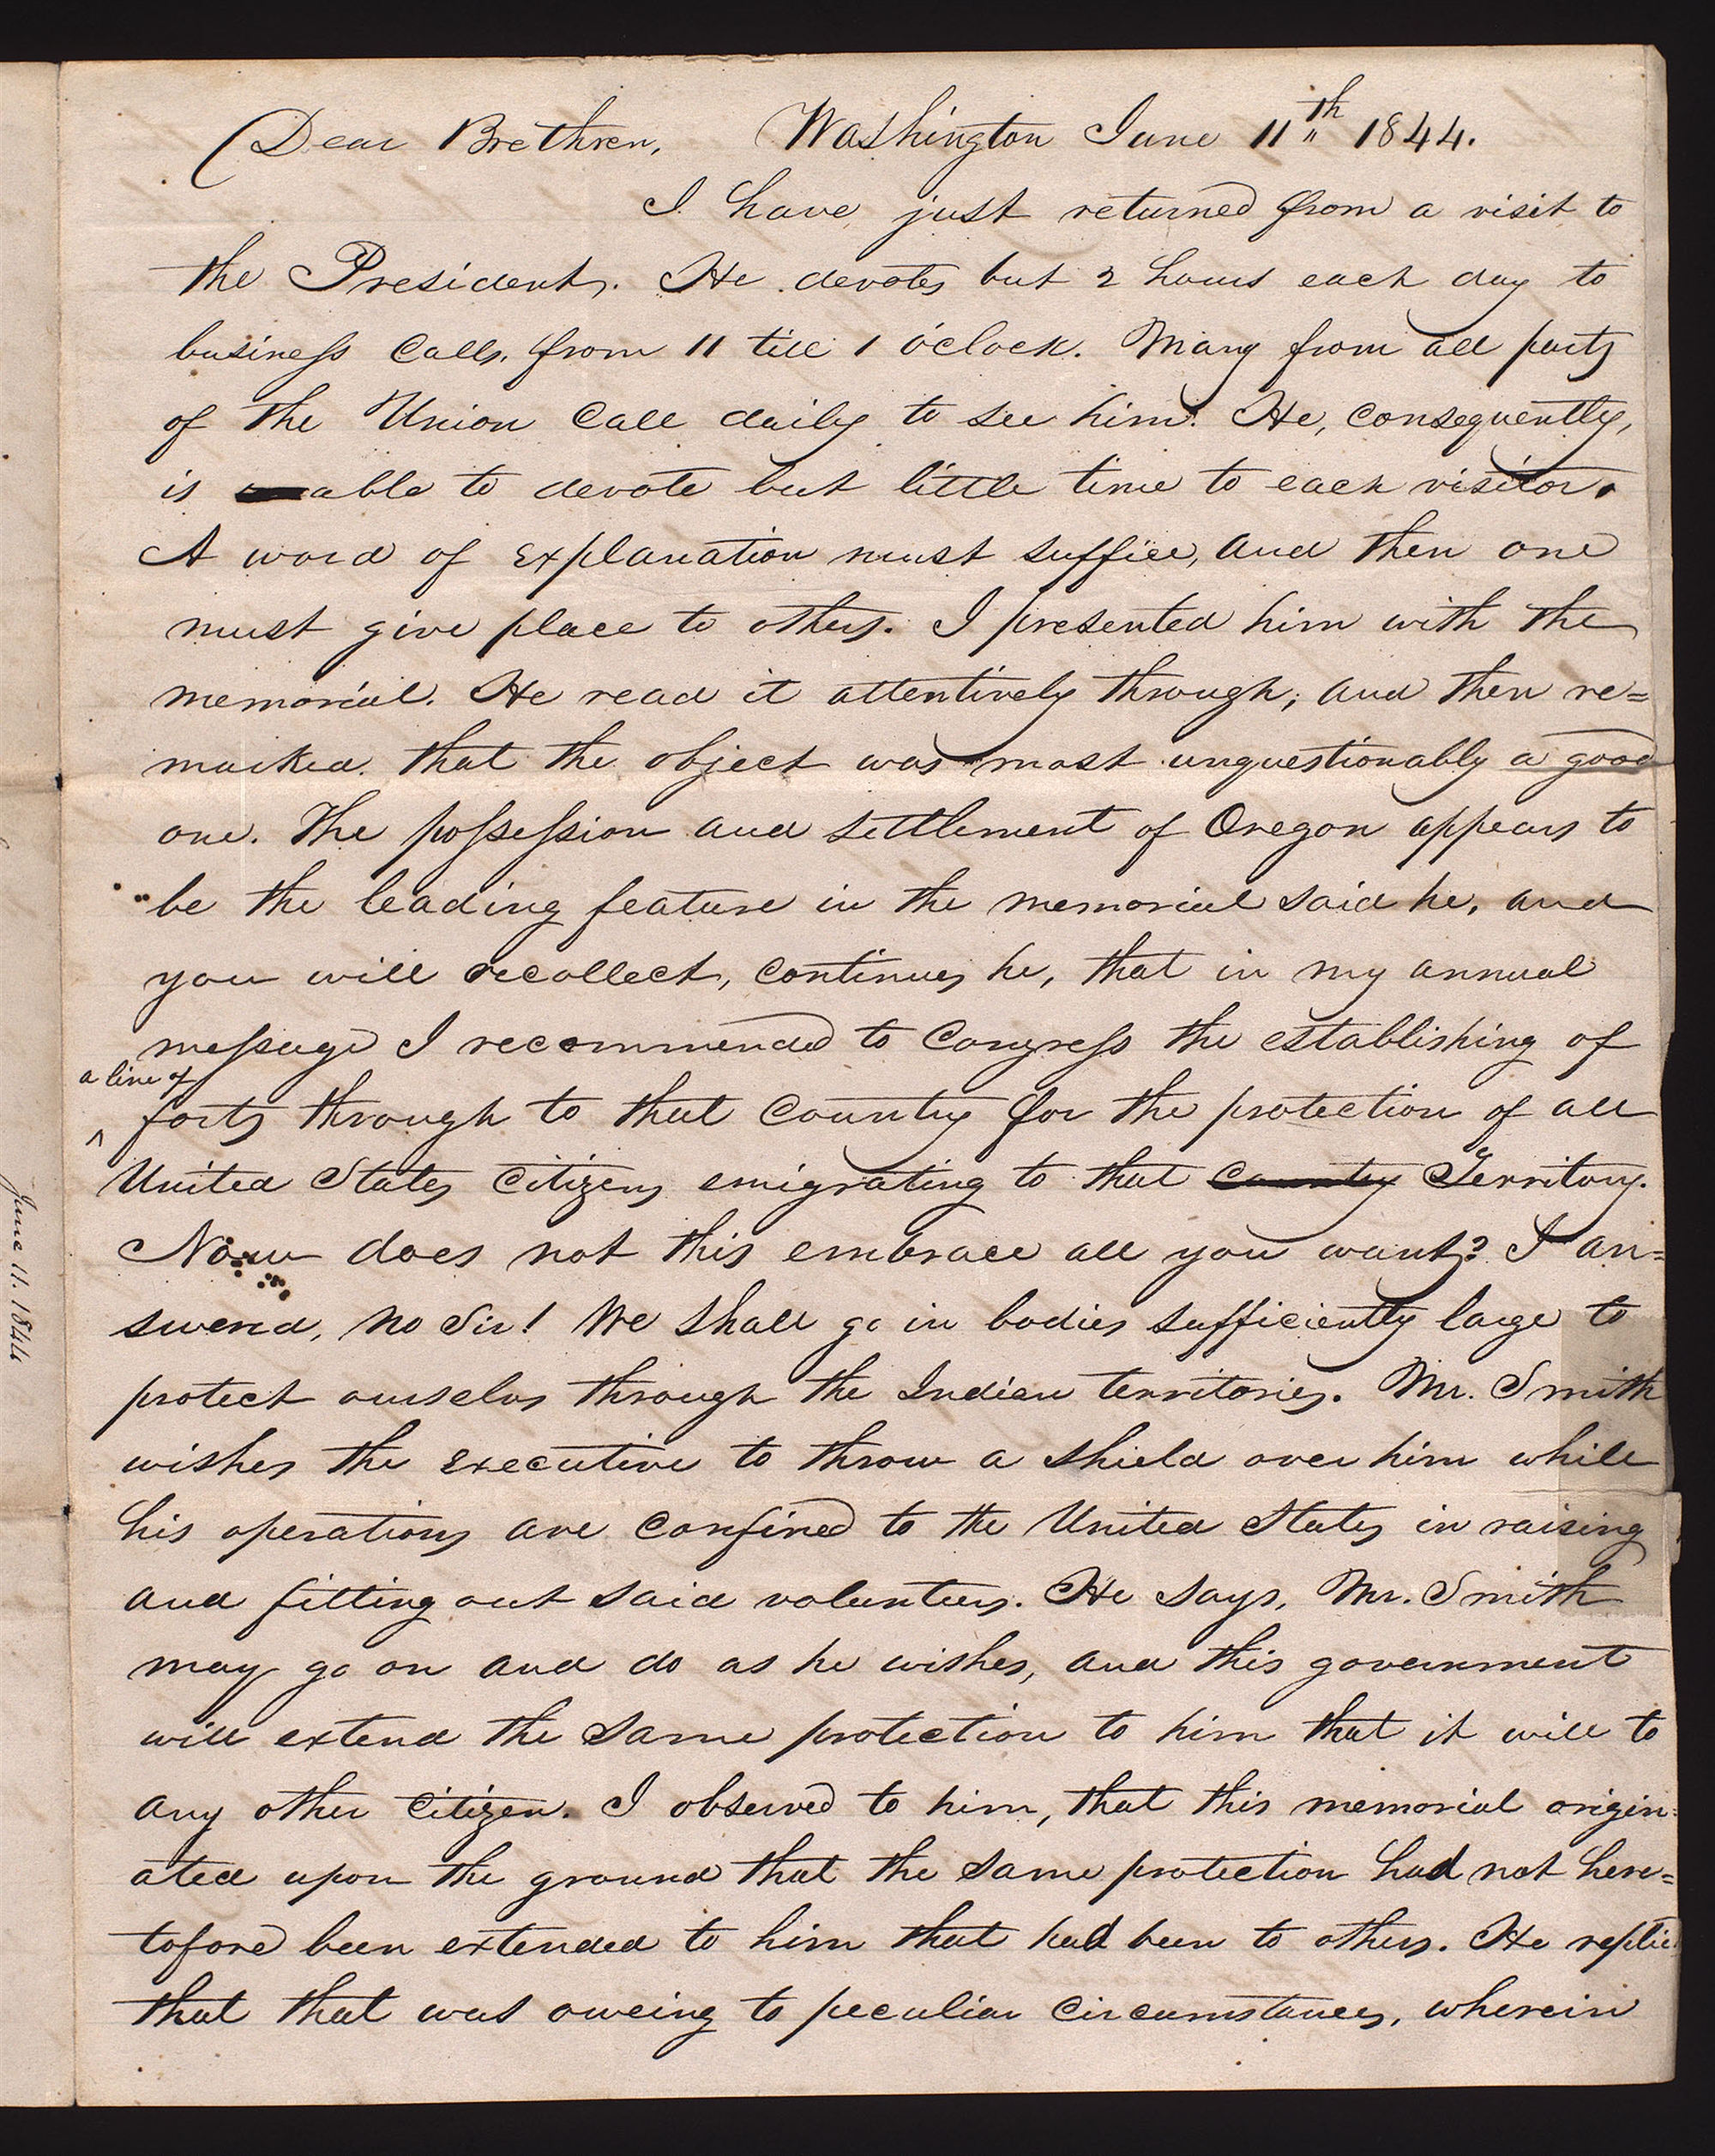 Dear Brethren, Washington June 11th 1844.
I have just returned from a visit to
the President. He devotes but 2 hours each day to
business calls, from 11 till 1 o'clock. Many from all parts
of the Union call daily to see him. He, consequently,
is able to devote but little time to each visitor.
A word of explanation must suffice, and then one
must give place to others. I presented him with the
memorial. He read it attentively through; and then re=
marked that the object was most unquestionably a good
one. The possession and settlement of Oregon appears to
be the leading feature in the memorial said he, and
you will recollect, continues he, that in my annual
message I recommended to Congress the establishing of
a line of
^ forts through to that country for the protection of all
United States citizens emigrating to that country Territory.
Now does not this embrace all you want? I an=
swered, no Sir! We shall go in bodies sufficiently large to
protect ourselves through the Indian territories. Mr. Smith
wishes the executive to throw a shield over him while
his operations are confined to the United States in raising
and fitting out said volunteers. He says, Mr. Smith
may go on and do as he wishes, and this government
will extend the same protection to him that it will to
any other citizen. I observed to him, that this memorial origin=
ated upon the ground that the same protection had not here=
tofore been extended to him that had been to others. He replied
that that was oweing to peculiar circumstances, wherein
June 11. 1844